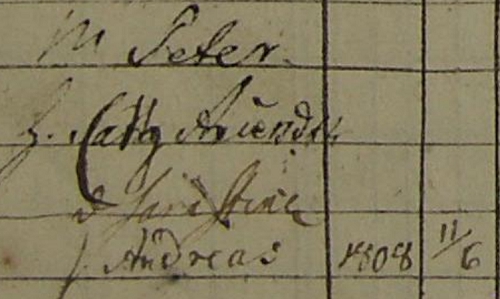 M Peter
h. Cathar Ariendtr.
d Christine
s. Andreas 1808 11/6